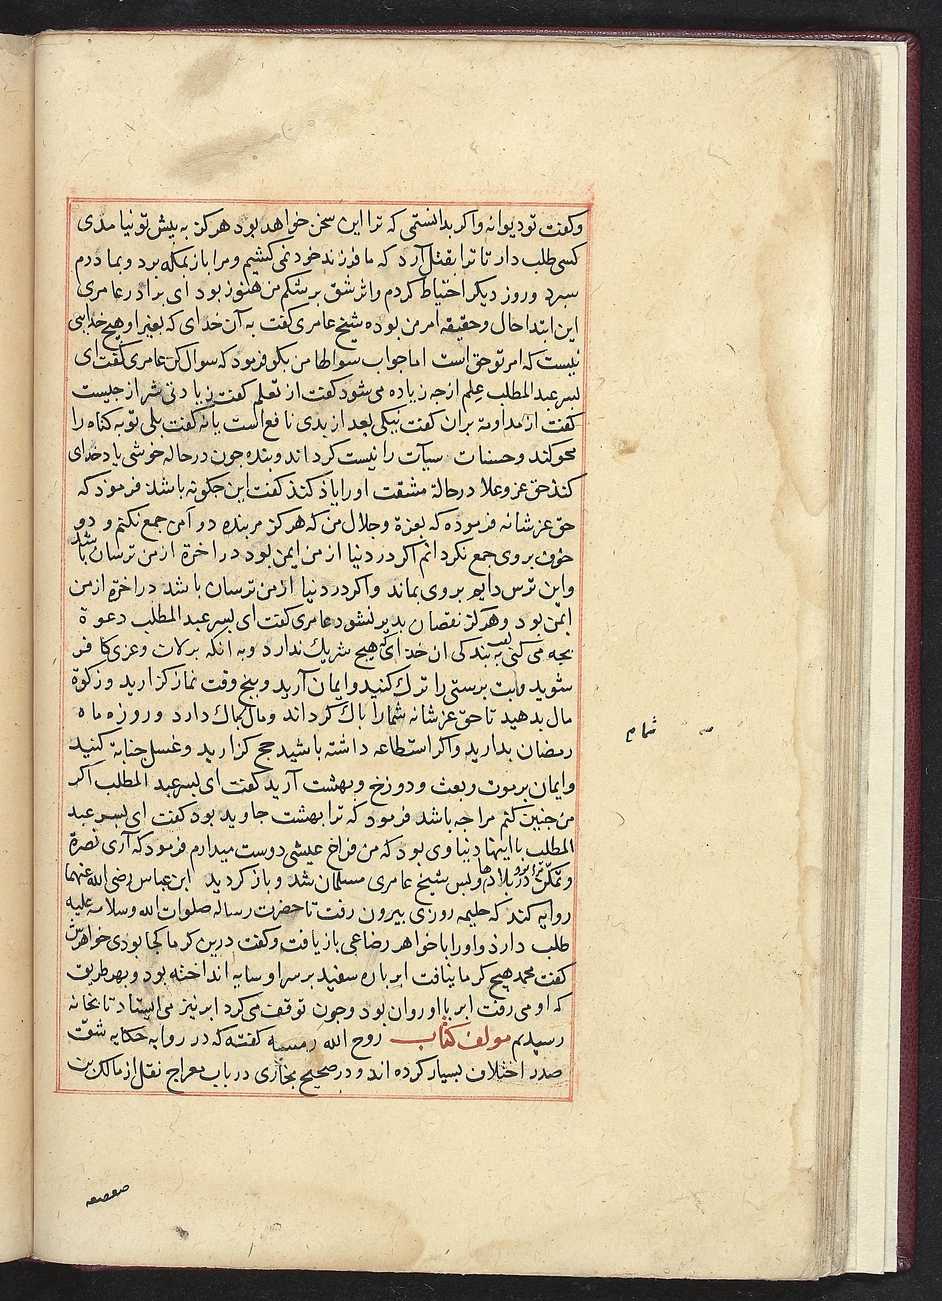 و کفت تو دیوانه واکر بدانستمی که ترا این سخن خواهد بود هرکز به پیش تو نیامدی
کسی طلب دار تا ترا بقتل آرد که ما فرزند خود نمی کشیم ومرا باز بمکه برد وبمادرم
سپرد وروز دیکر احتیاط کردم واثر شق بر شکم من هنوز بود ای برادر عامری
این ابتدا حال وحقیقه امر من بوده شیخ عامری کفت به آن خدای که بغیر او هیچ خدایی
نیست که امر تو حق است اما جواب سوالها من بکو فرمود که سوال کن عامری کفت ای
پسر عبد المطلب علم از جه زیاده می شود کفت از تعلم کفت زیادتی شر از جیست
کفت از مداومة بران کفت نیکی بعد از بدی نافع است یا نه کفت بلی توبه کناه را
محو کند وحسنات سیآت را نیست کرداند وبنده جون در حاله خوشی یاد خدای
کند حق عز وعلا در حالة مشقت او را یاد کند کفت این جکونه باشد فرمود که
حق عز شانه فرموده که بعزة وجلال من که هرکز مر بنده دو آمن جمع نکنم و دو
خوف بر وی جمع نکردانم اکر در دنیا از من ایمن بود در اخرة از من ترسان باشد
واین ترس دایم بر وی بماند واکر در دنیا از من ترسان باشد در اخرة از من
ایمن بود وهرکز نقصان پدیر نشود عامری کفت ای پسر عبد المطلب دعوة
بجه می کنی کفت به بندکی ان خدای که هیچ شریک ندارد وبه انکه بر لات وعزی کافر
شوید وبت پرستی را ترک کنید وایمان آرید وپنج وقت نماز کزارید وزکوة
مال بدهید تا حق عز شانه شما را پاک کرداند ومال پاک دارد وروزه ماه
رمضان بدارید واکر استطاعه داشته باشید حج کزارید وغسل جنابة کنید
وایمان بر موت وبعث ودوزخ وبهشت آرید کفت ای پسر عبد المطلب اکر
من جنین کنم مرا جه باشد فرمود که ترا بهشت جاوید بود کفت ای پسر عبد
المطلب با اینها دنیاوی بود که من فراخ عیشی دوست میدارم فرمود که آری نصرة
وتمکن ترا بود در بلادها وبس شیخ عامری مسلمان شد وباز کردید ابن عباس رضی الله عنهما
روایه کند که حلیمه روزی بیرون رفت تا حضرت رساله صلوات الله وسلامه علیه
طلب دارد واو را با خواهر رضاعی باز یافت وکفت درین کرما کجا بودی خواهرش
کفت محمد هیچ کرما نیافت ابر پاره سفید بر سر او سایه انداخته بود وبهر طریق
که او می رفت ابر با او روان بود وجون توقف می کرد ابر نیز می ایستاد تا بخانه
رسیدیم مولف کتاب روح الله رمسه کفته که در روایه حکایه شق
صدر اختلاف بسیار کرده اند و در صحیح بخاری در باب معراج نقل از مالک بن
شمام
صعصعه